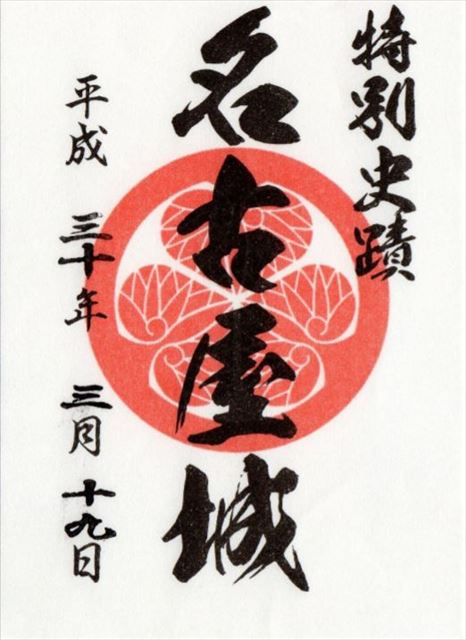 特別史蹟
名古屋城
平成 三十年 三月 十九日